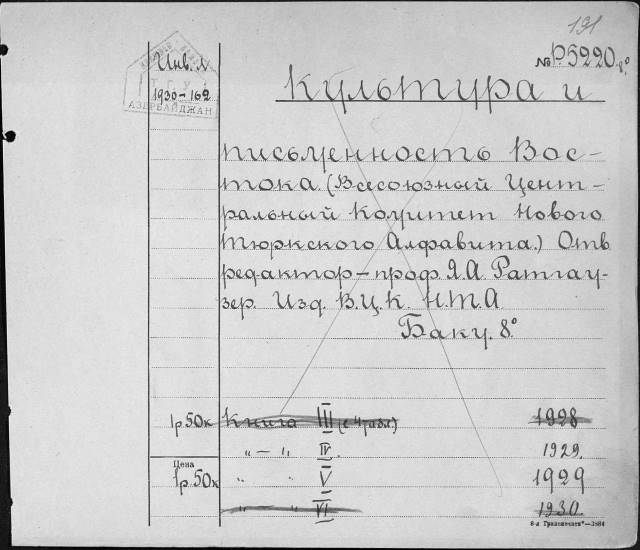 191
№ Р5220 8°
Инв. №
1930-162
АЗЕРБАЙДЖАН
Культура и
письменность Вос-
тока. (Всесоюзный Цент-
ральный Комитет Нового
Тюркского Алфавита.) Отв
редактор-проф. Я.А. Ратгау-
зер. Изд. В.Ц.К. Н.Т.А
Баку. 8°.
1р.50к Книга III (с 4 табл.) 1928
" — " IV. 1929.
Цена
1р.50к " " V 1929
" " VI 1930.